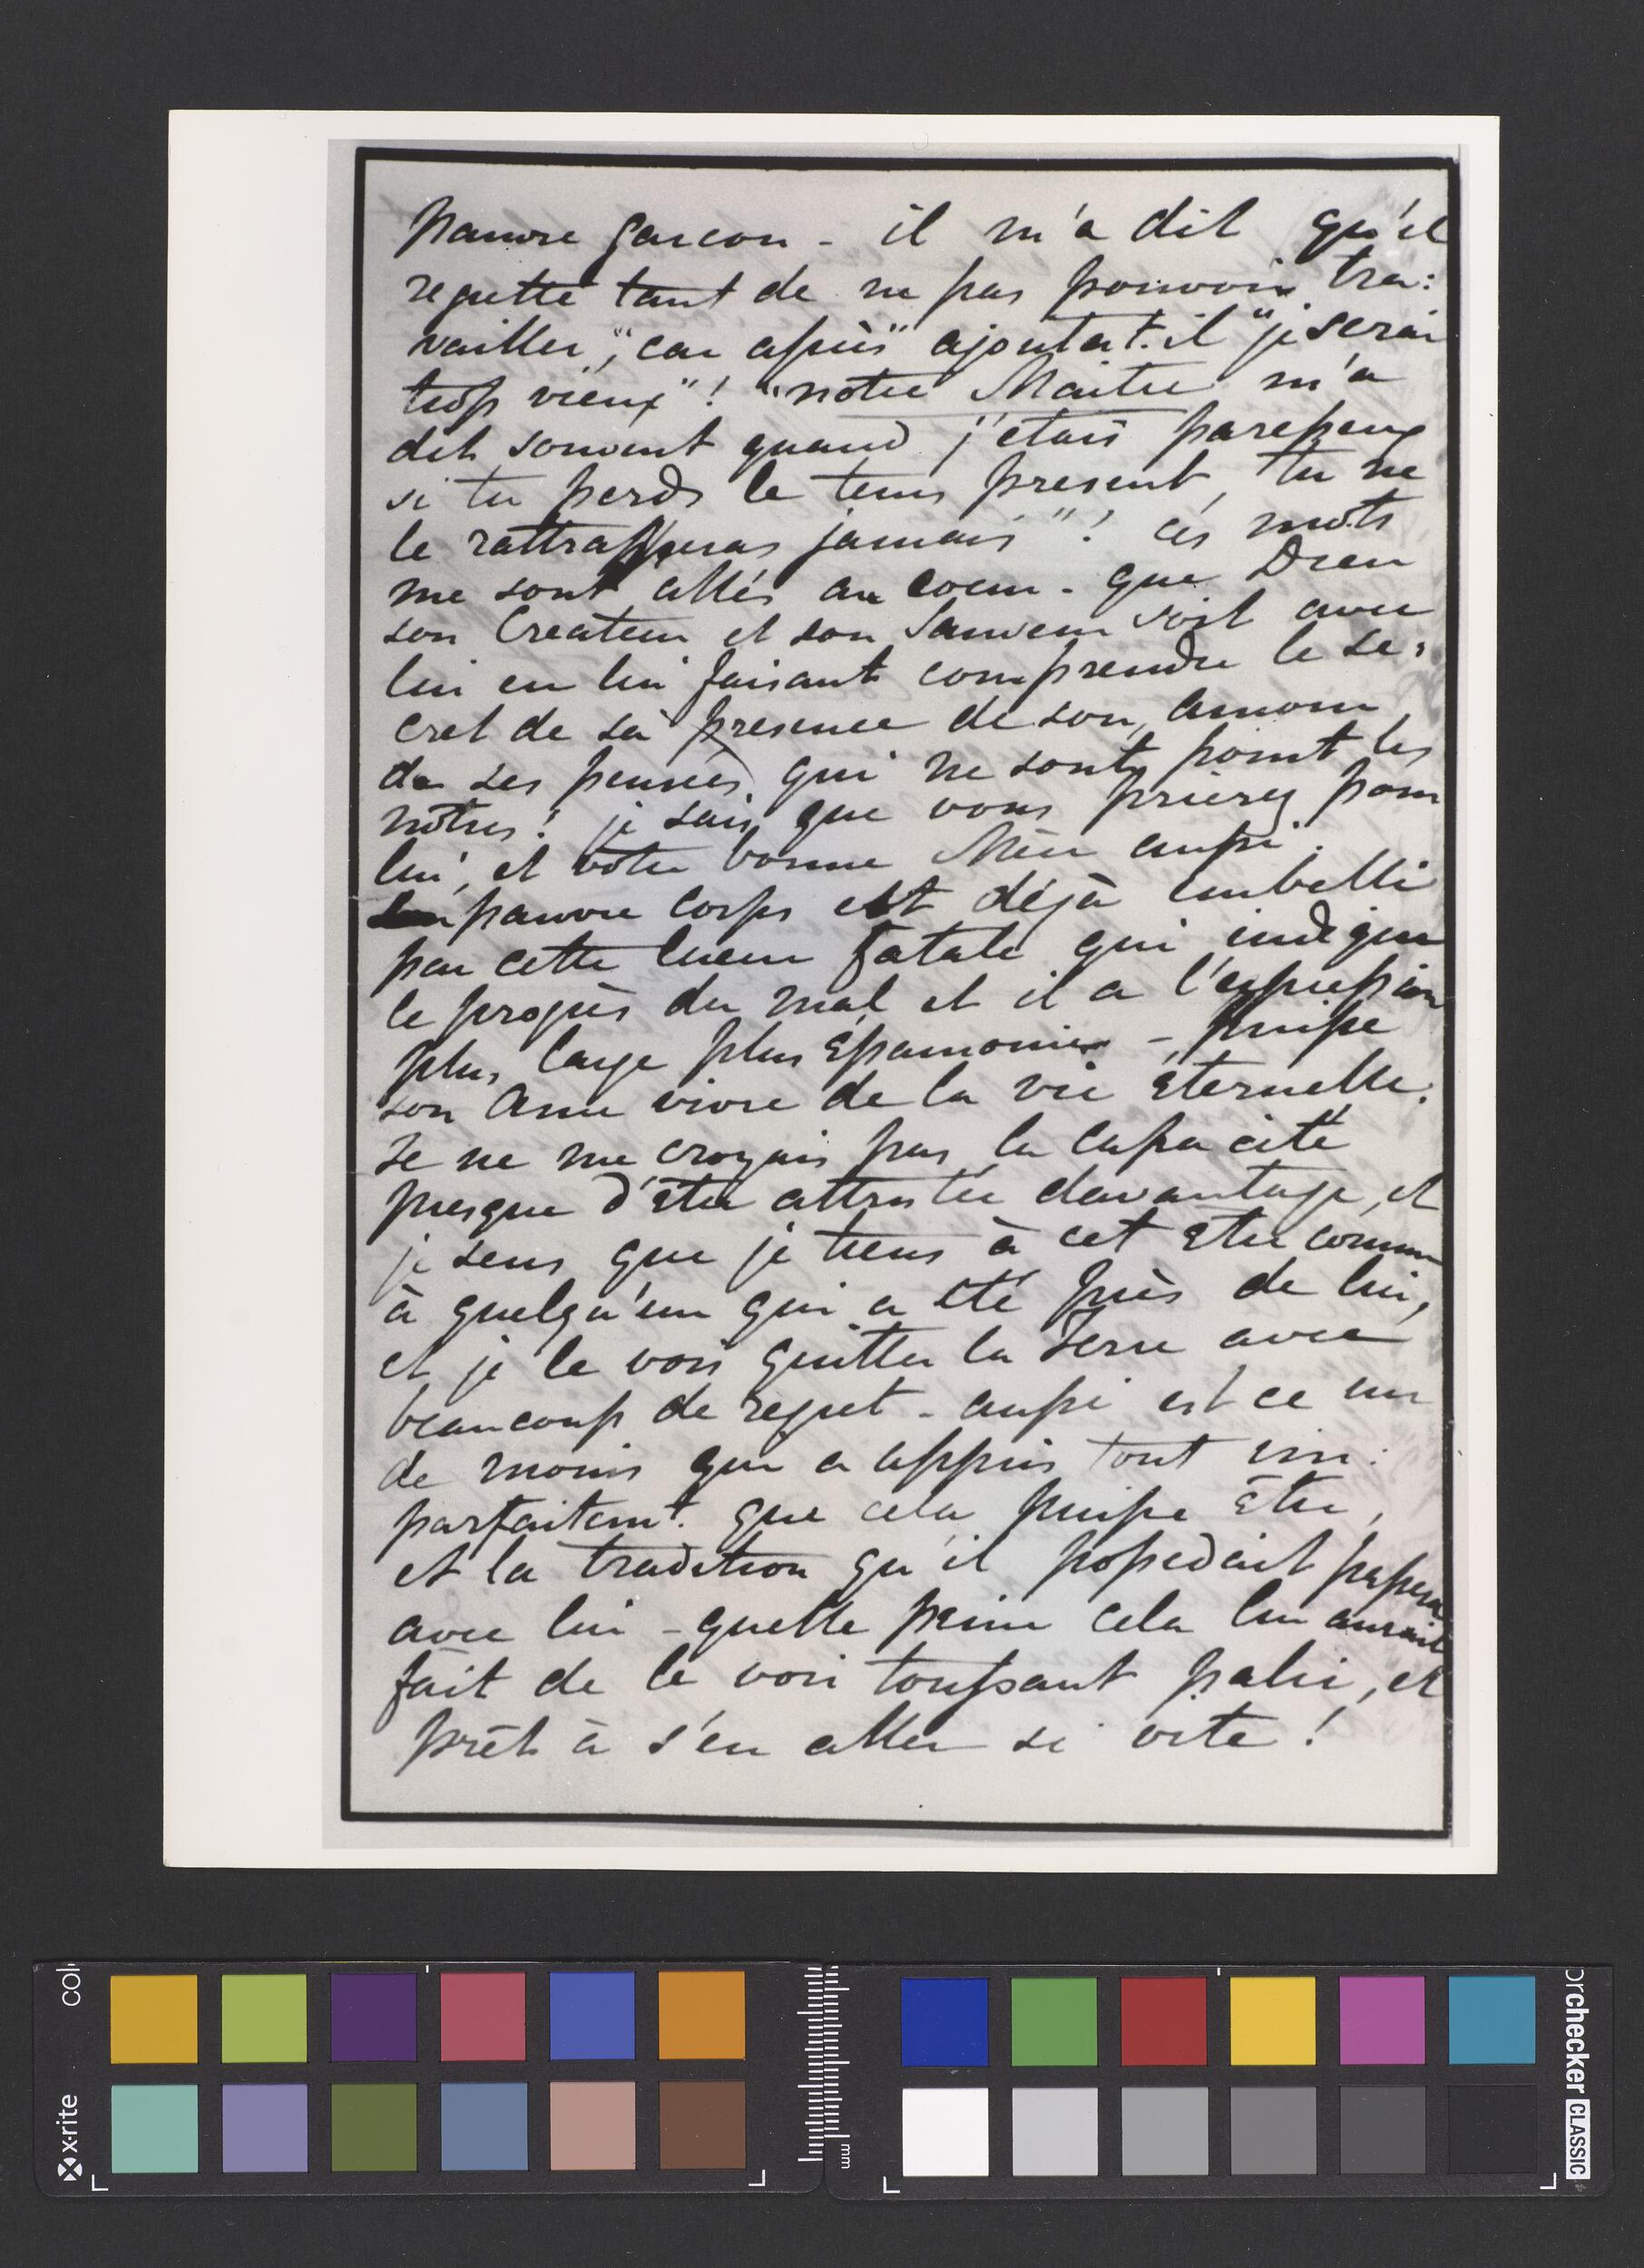 pauvre garcon - il m'a dit qu'il
regrette tant de ne pas pouvoir tra:
vailler, "car après" ajouta t. il "je serai
trop vieux"! "notre Maitre m'a
dit souvent quand j'étais paresseux
si tu perds le tems present, tu ne
le rattrapperas jamais"! ces mots
me sont allés au coeur - que Dieu
son Createur et son Sauveur soit avec
lui en lui faisant comprendre le se:
cret de sa presence de son amour,
de ses pensées, qui ne sont point les
nôtres! je sais que vous prierez pour
lui, et votre bonne Mère aussi.
pauvre corps est déjà embelli
par cette lueur fatale qui indique
le progrès du mal et il a l'expression
plus large plus épanouie - puisse
son ame vivre de la vie éternelle.
Je ne me croyais pas la capacité
presque d'être attristée davantage, et
je sens que je tiens à cet être comme
à quelqu'un qui a été près de lui,
et je le vois quitter la terre avec
beaucoup de regret - aussi est ce un
de moins qui a appris tout im:
parfaitemt. que cela puisse être,
et la tradition qu'il possedait passera
avec lui - quelle peine cela lui aurait
fait de le voir toussant palir, et
prêt à s'en aller si vite!
x-rite
colorchecker CLASSIC
mm